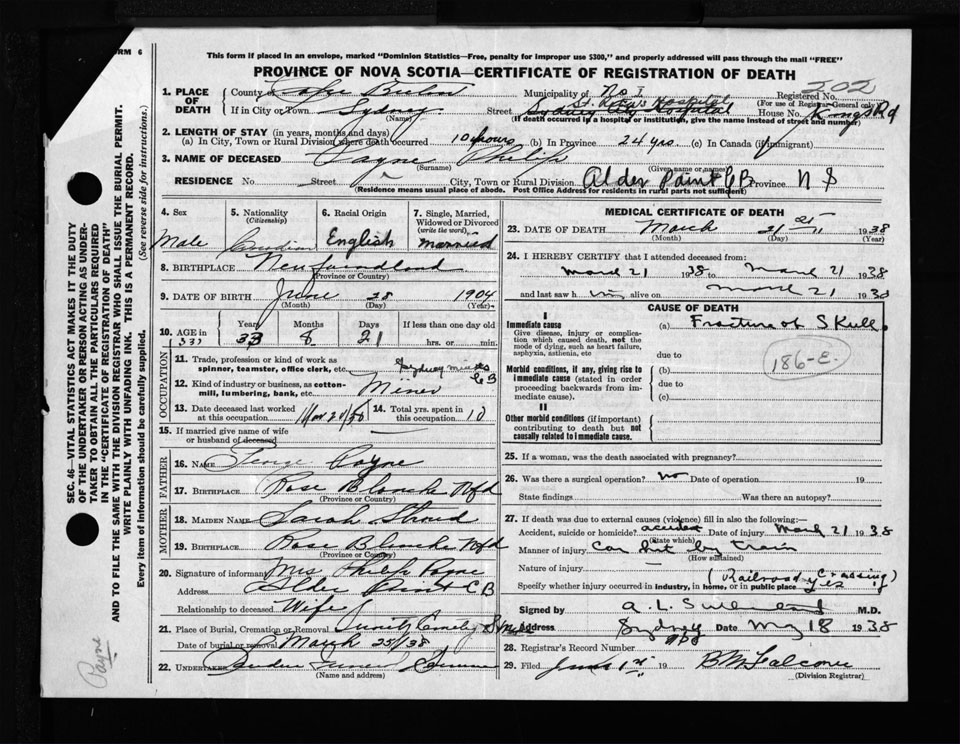 FORM 6
This form if placed in an envelope, marked "Dominion Statistics—Free, penalty for improper use $300," and properly addressed will pass through the mail "FREE"
PROVINCE OF NOVA SCOTIA—CERTIFICATE OF REGISTRATION OF DEATH
202
1. PLACE OF DEATH
County of Cape Breton Municipality of No 1 Registered No.
(For use of Registrar General only)
If in City or Town Sydney (Name) Street Sydney City Hospital St. Rita's Hospital House No. Kings Rd
(If death occurred in a hospital or institution, give the name instead of street and number)
2. LENGTH OF STAY (in years, months and days)
(a) In City, Town or Rural Division where death occurred 10 hours (b) In Province 24 yrs. (c) In Canada (if immigrant)
3. NAME OF DECEASED Payne Philip
(Surname) (Given name or names)
RESIDENCE No Street City, Town or Rural Division Alder Point CB Province N S
(Residence means usual place of abode. Post Office Address for residents in rural parts not sufficient)
4. Sex Male
5. Nationality (Citizenship) Canadian
6. Racial Origin English
7. Single, Married, Widowed or Divorced (write the word) married
8. BIRTHPLACE Newfoundland
(Province or Country)
9. DATE OF BIRTH June 28 1904
(Month) (Day) (Year)
10. AGE in (33) Years 33 Months 8 Days 21 If less than one day hrs. or min.
OCCUPATION
11. Trade, profession or kind of work as spinner, teamster, office clerk, etc. Sydney mines CB
12. Kind of industry or business, as cotton-mill, lumbering, bank, etc. Miner
13. Date deceased last worked at this occupation
14. Total yrs. spent in this occupation 10
15. If married give name of wife or husband of deceased
FATHER
16. NAME Payne
17. BIRTHPLACE Rose Blanche Nfd
(Province or Country)
MOTHER
18. MAIDEN NAME Sarah Stroud
19. BIRTHPLACE Rose Blanche Nfd
(Province or Country)
20. Signature of informant Mrs Philip Payne
Address Alder Point C B
Relationship to deceased Wife
21. Place of Burial, Cremation or Removal
Date of burial or removal March 25/38
22. UNDERTAKER
(Name and address)
MEDICAL CERTIFICATE OF DEATH
23. DATE OF DEATH March 21 1938
(Month) (Day) (Year)
24. I HEREBY CERTIFY that I attended deceased from
March 21 1938 to March 21 1938
and last saw him alive on March 21 1938
CAUSE OF DEATH
I
Immediate cause
Give disease, injury or complication which caused death, not the mode of dying, such as heart failure, asphyxia, asthenia, etc
(a) Fracture of Skull.
due to
186-E.
Morbid conditions, if any, giving rise to immediate cause (stated in order proceeding backwards from immediate cause).
(b)
due to
(c)
II
Other morbid conditions (if important) contributing to death but not causally related to immediate cause.
25. If a woman, was the death associated with pregnancy?
26. Was there a surgical operation? no Date of operation 19
State findings Was there an autopsy?
27. If death was due to external causes (violence) fill in also the following:—
Accident, suicide or homicide? accident Date of injury March 21 1938
(State which)
Manner of injury Car hit by train
(How sustained)
Nature of injury
(Railroad Crossing)
Specify whether injury occurred in industry, in home, or in public place yes
Signed by M.D.
Address Sydney Date My 18 1938
28. Registrar's Record Number
29. Filed 19
(Division Registrar)
SEC. 46—VITAL STATISTICS ACT MAKES IT THE DUTY OF THE UNDERTAKER OR PERSON ACTING AS UNDERTAKER TO OBTAIN ALL THE PARTICULARS REQUIRED IN THE "CERTIFICATE OF REGISTRATION OF DEATH"
AND TO FILE THE SAME WITH THE DIVISION REGISTRAR WHO SHALL ISSUE THE BURIAL PERMIT.
WRITE PLAINLY WITH UNFADING INK. THIS IS A PERMANENT RECORD.
Every item of information should be carefully supplied. (See reverse side for instructions.)
Payne